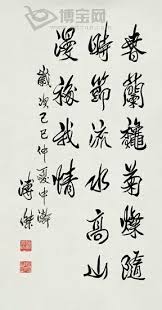 博宝网
春蘭龝菊燦隨
時節流水高山
漫移我情
歲次己巳仲夏中澣
溥傑